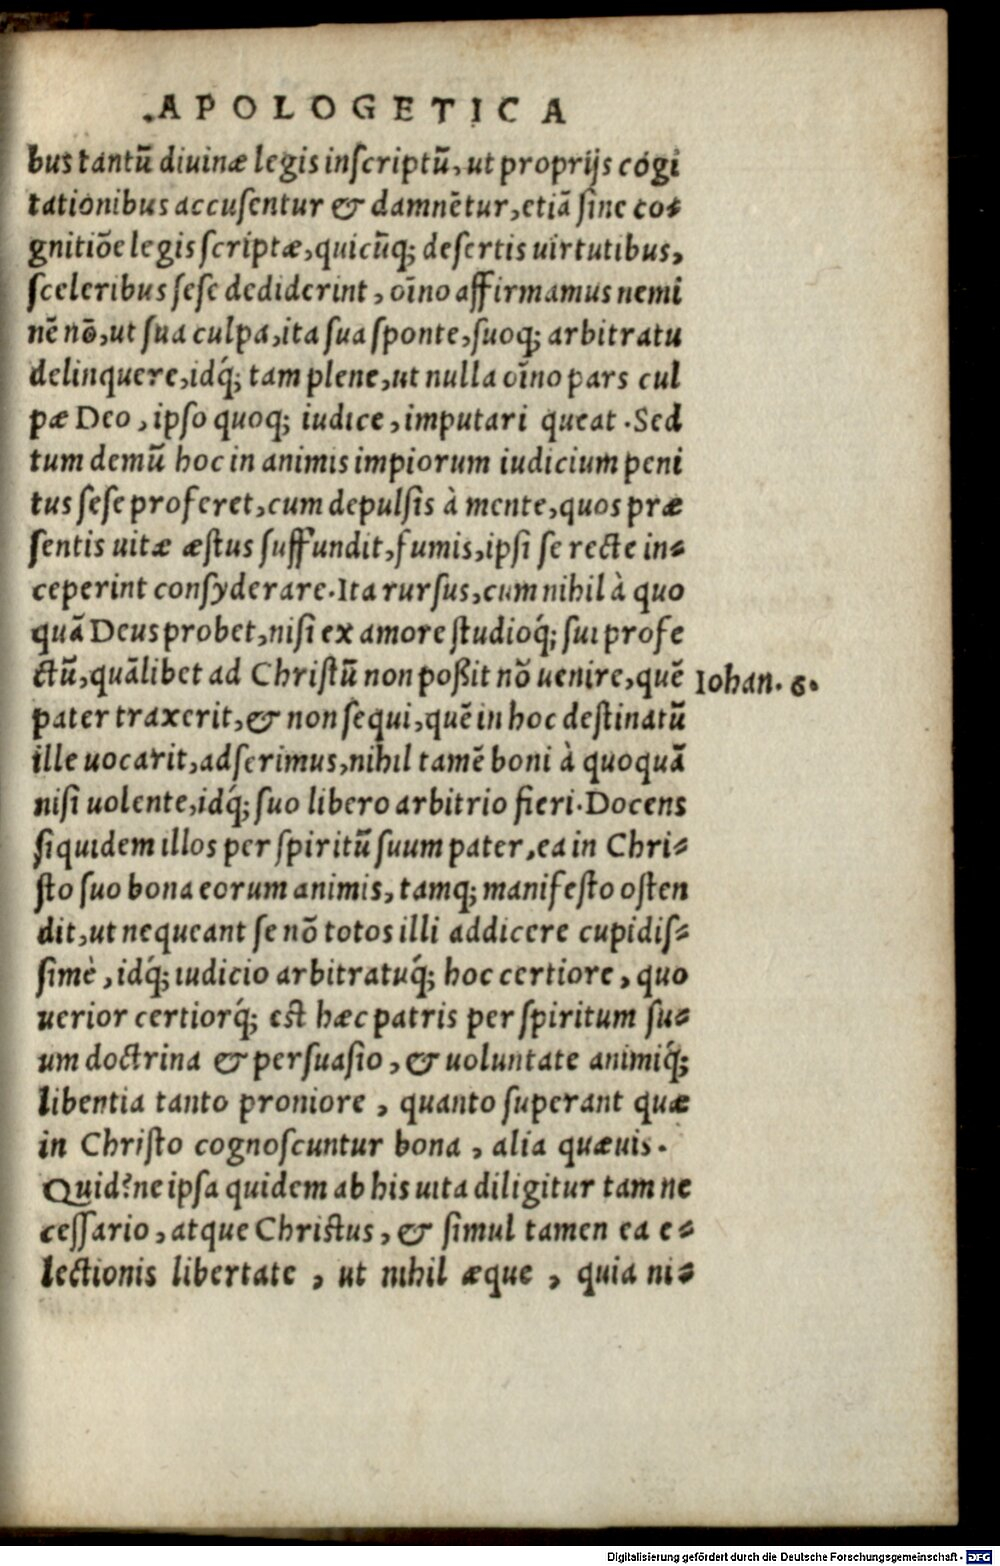 APOLOGETICA
bus tantũ diuinæ legis inſcriptũ, ut proprijs cogi
tationibus accuſentur & damnẽtur, etiã ſine co⸗
gnitiõe legis ſcriptæ, quicũq; deſertis uirtutibus,
ſceleribus ſeſe dediderint, oĩno affirmamus nemi
nẽ nõ, ut ſua culpa, ita ſua ſponte, ſuoq; arbitratu
delinquere, idq́; tam plene, ut nulla oĩno pars cul
pæ Deo, ipſo quoq; iudice, imputari queat. Sed
tum demũ hoc in animis impiorum iudicium peni
tus ſeſe proferet, cum depulſis à mente, quos præ
ſentis uitæ æſtus ſuffundit, fumis, ipſi ſe recte in⸗
ceperint conſyderare. Ita rurſus, cum nihil à quo
quã Deus probet, niſi ex amore ſtudioq́; ſui profe
ctũ, quãlibet ad Chriſtũ non poßit nõ uenire, quẽ
Iohan. 6.
pater traxerit, & non ſequi, quẽ in hoc deſtinatũ
ille uocarit, adſerimus, nihil tamẽ boni à quoquã
niſi uolente, idq́; ſuo libero arbitrio fieri. Docens
ſiquidem illos per ſpiritũ ſuum pater, ea in Chri⸗
ſto ſuo bona eorum animis, tamq; manifeſto oſten
dit, ut nequeant ſe nõ totos illi addicere cupidiſ⸗
ſimè, idq́; iudicio arbitratuq́; hoc certiore, quo
uerior certiorq́; eſt hæc patris per ſpiritum ſu⸗
um doctrina & perſuaſio, & uoluntate animiq́;
libentia tanto proniore, quanto ſuperant quæ
in Chriſto cognoſcuntur bona, alia quæuis.
Quid? ne ipſa quidem ab his uita diligitur tam ne
ceſſario, atque Chriſtus, & ſimul tamen ea e⸗
lectionis libertate, ut nihil æque, quia ni⸗
Digitalisierung gefördert durch die Deutsche Forschungsgemeinschaft - DFG